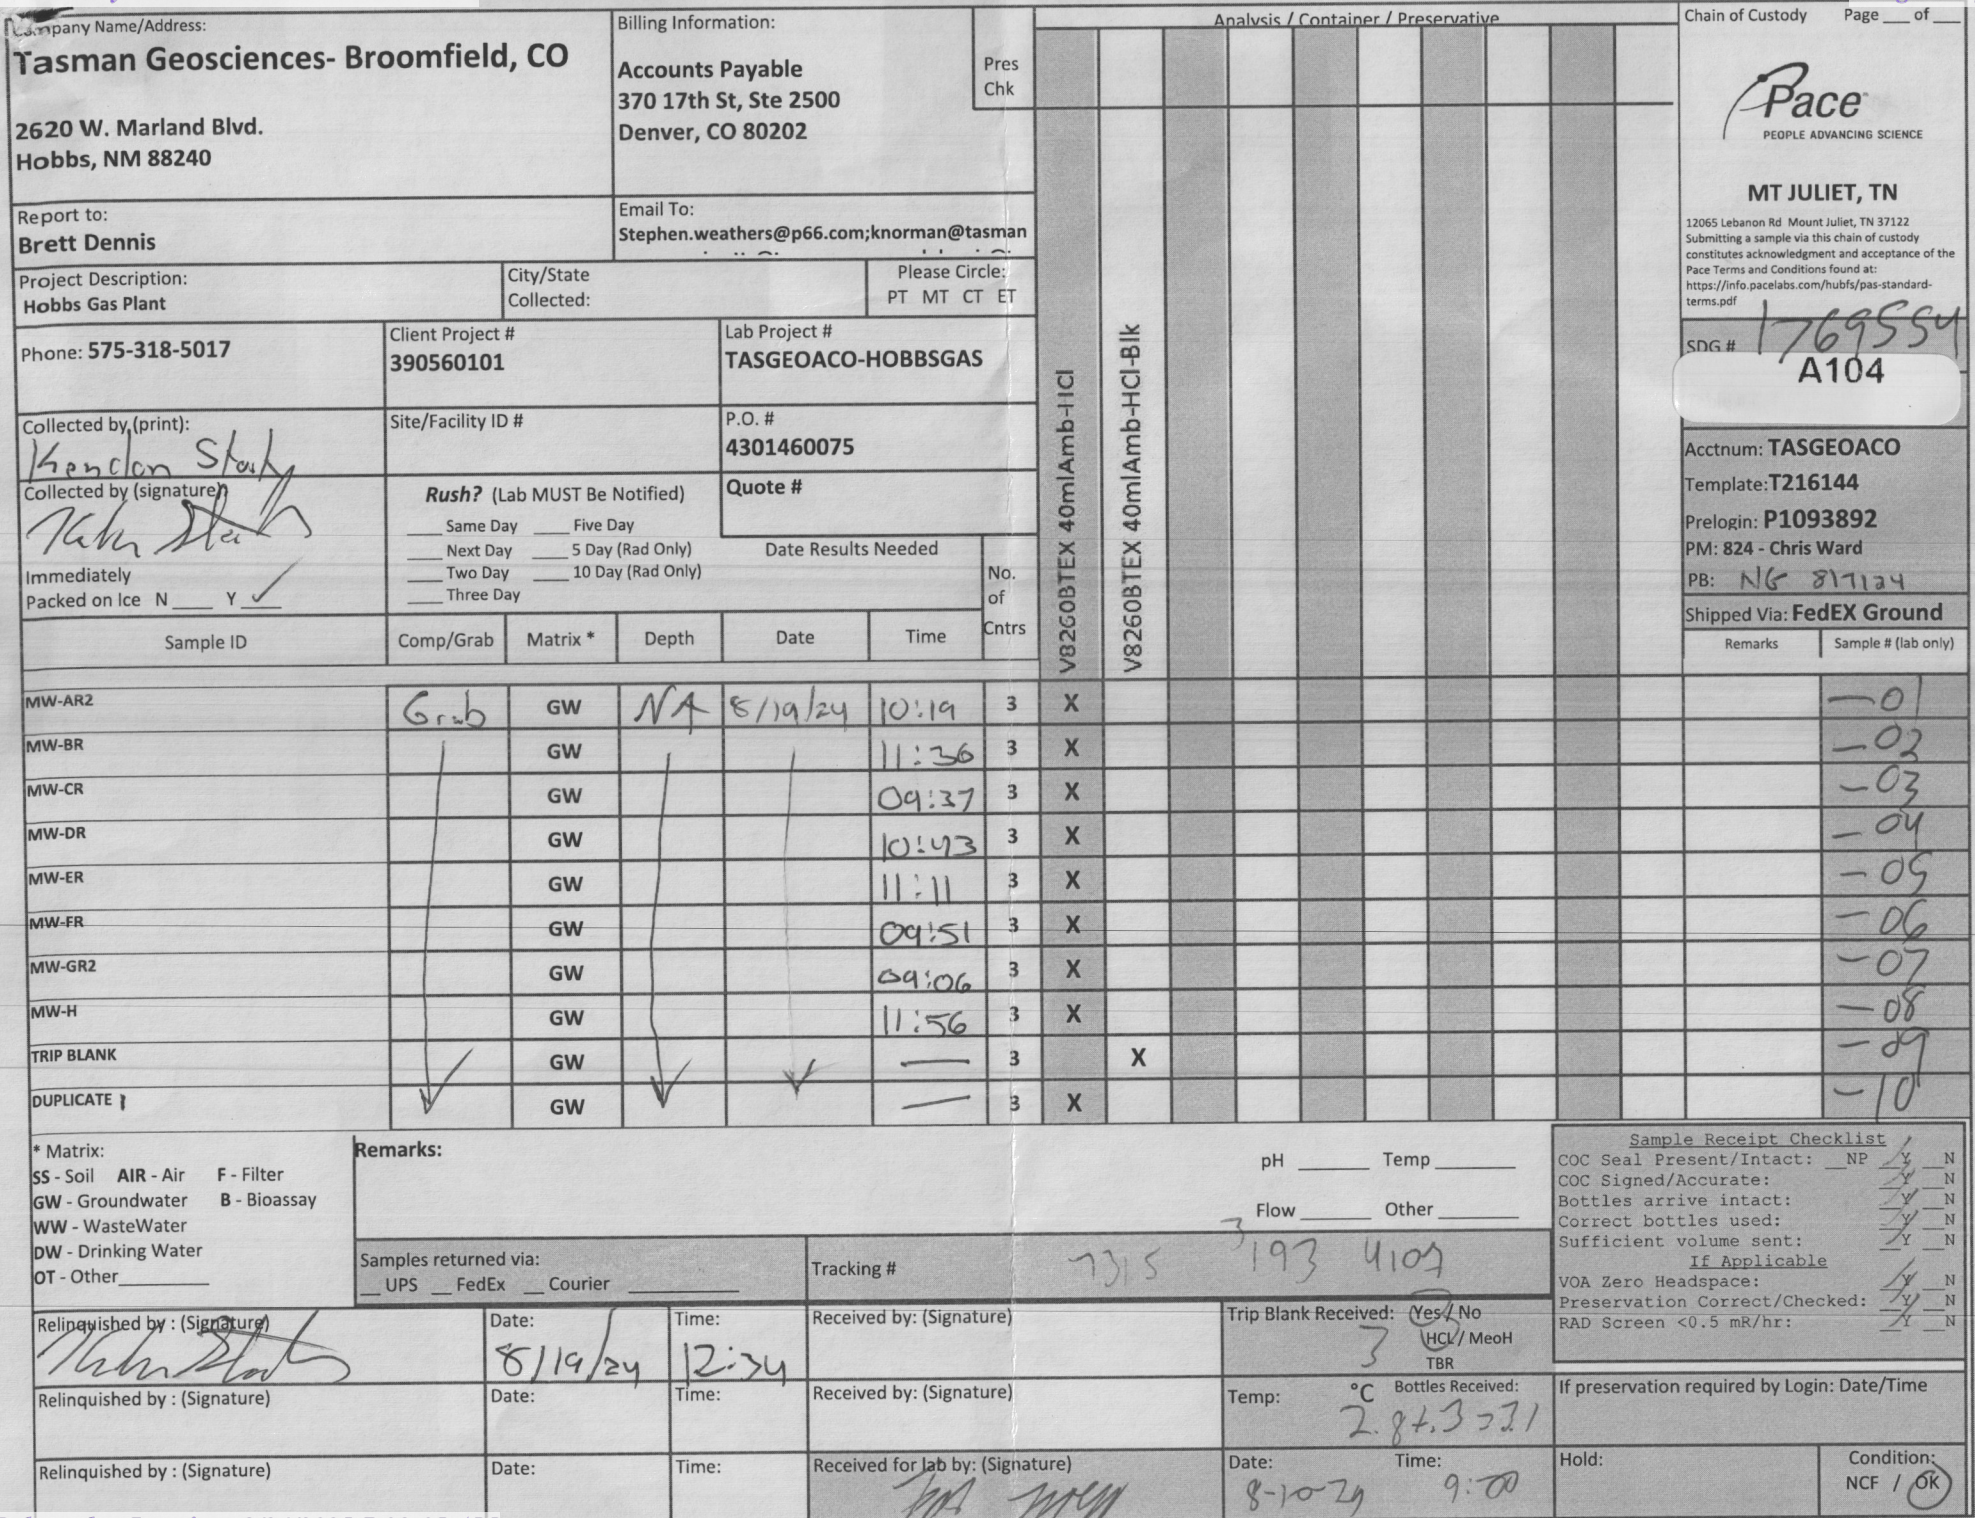 Company Name/Address:
Tasman Geosciences- Broomfield, CO
2620 W. Marland Blvd.
Hobbs, NM 88240
Billing Information:
Accounts Payable
370 17th St, Ste 2500
Denver, CO 80202
Pres
Chk
Analysis / Container / Preservative
Chain of Custody Page ___ of ___
Pace
PEOPLE ADVANCING SCIENCE
MT JULIET, TN
12065 Lebanon Rd Mount Juliet, TN 37122
Submitting a sample via this chain of custody
constitutes acknowledgment and acceptance of the
Pace Terms and Conditions found at:
https://info.pacelabs.com/hubfs/pas-standard-
terms.pdf
Report to:
Brett Dennis
Email To:
Stephen.weathers@p66.com;knorman@tasman
Project Description:
Hobbs Gas Plant
City/State
Collected:
Please Circle:
PT MT CT ET
Phone: 575-318-5017
Client Project #
390560101
Lab Project #
TASGEOACO-HOBBSGAS
SDG # 1769554
A104
Collected by (print):
Site/Facility ID #
P.O. #
4301460075
Acctnum: TASGEOACO
Template:T216144
Prelogin: P1093892
PM: 824 - Chris Ward
PB: NG 8/7/24
Shipped Via: FedEX Ground
Collected by (signature)
Rush? (Lab MUST Be Notified)
___ Same Day ___ Five Day
___ Next Day ___ 5 Day (Rad Only)
___ Two Day ___ 10 Day (Rad Only)
___ Three Day
Quote #
Date Results Needed
Immediately
Packed on Ice N ___ Y ✓
No.
of
Cntrs
V8260BTEX 40mlAmb-HCl
V8260BTEX 40mlAmb-HCl-Blk
Sample ID Comp/Grab Matrix * Depth Date Time Remarks Sample # (lab only)
MW-AR2 Grab GW NA 8/19/24 10:19 3 X -01
MW-BR GW 11:36 3 X -02
MW-CR GW 09:37 3 X -03
MW-DR GW 10:43 3 X -04
MW-ER GW 11:11 3 X -05
MW-FR GW 09:51 3 X -06
MW-GR2 GW 09:06 3 X -07
MW-H GW 11:56 3 X -08
TRIP BLANK GW — 3 X -09
DUPLICATE 1 GW — 3 X -10
* Matrix:
SS - Soil AIR - Air F - Filter
GW - Groundwater B - Bioassay
WW - WasteWater
DW - Drinking Water
OT - Other
Remarks:
pH ___ Temp ___
Flow ___ Other ___
Samples returned via:
__ UPS __ FedEx __ Courier
Tracking # 7315 3193 4107
Sample Receipt Checklist
COC Seal Present/Intact: __NP Y __N
COC Signed/Accurate: Y __N
Bottles arrive intact: Y __N
Correct bottles used: Y __N
Sufficient volume sent: Y __N
If Applicable
VOA Zero Headspace: Y __N
Preservation Correct/Checked: Y __N
RAD Screen <0.5 mR/hr: Y __N
Relinquished by : (Signature)
Date:
8/19/24
Time:
12:34
Received by: (Signature)
Trip Blank Received: Yes / No
3 HCL / MeoH
TBR
Relinquished by : (Signature)
Date:
Time:
Received by: (Signature)
Temp: °C Bottles Received:
2.8+.3=3.1
If preservation required by Login: Date/Time
Relinquished by : (Signature)
Date:
Time:
Received for lab by: (Signature)
Date:
Time:
9:00
Hold:
Condition:
NCF / OK